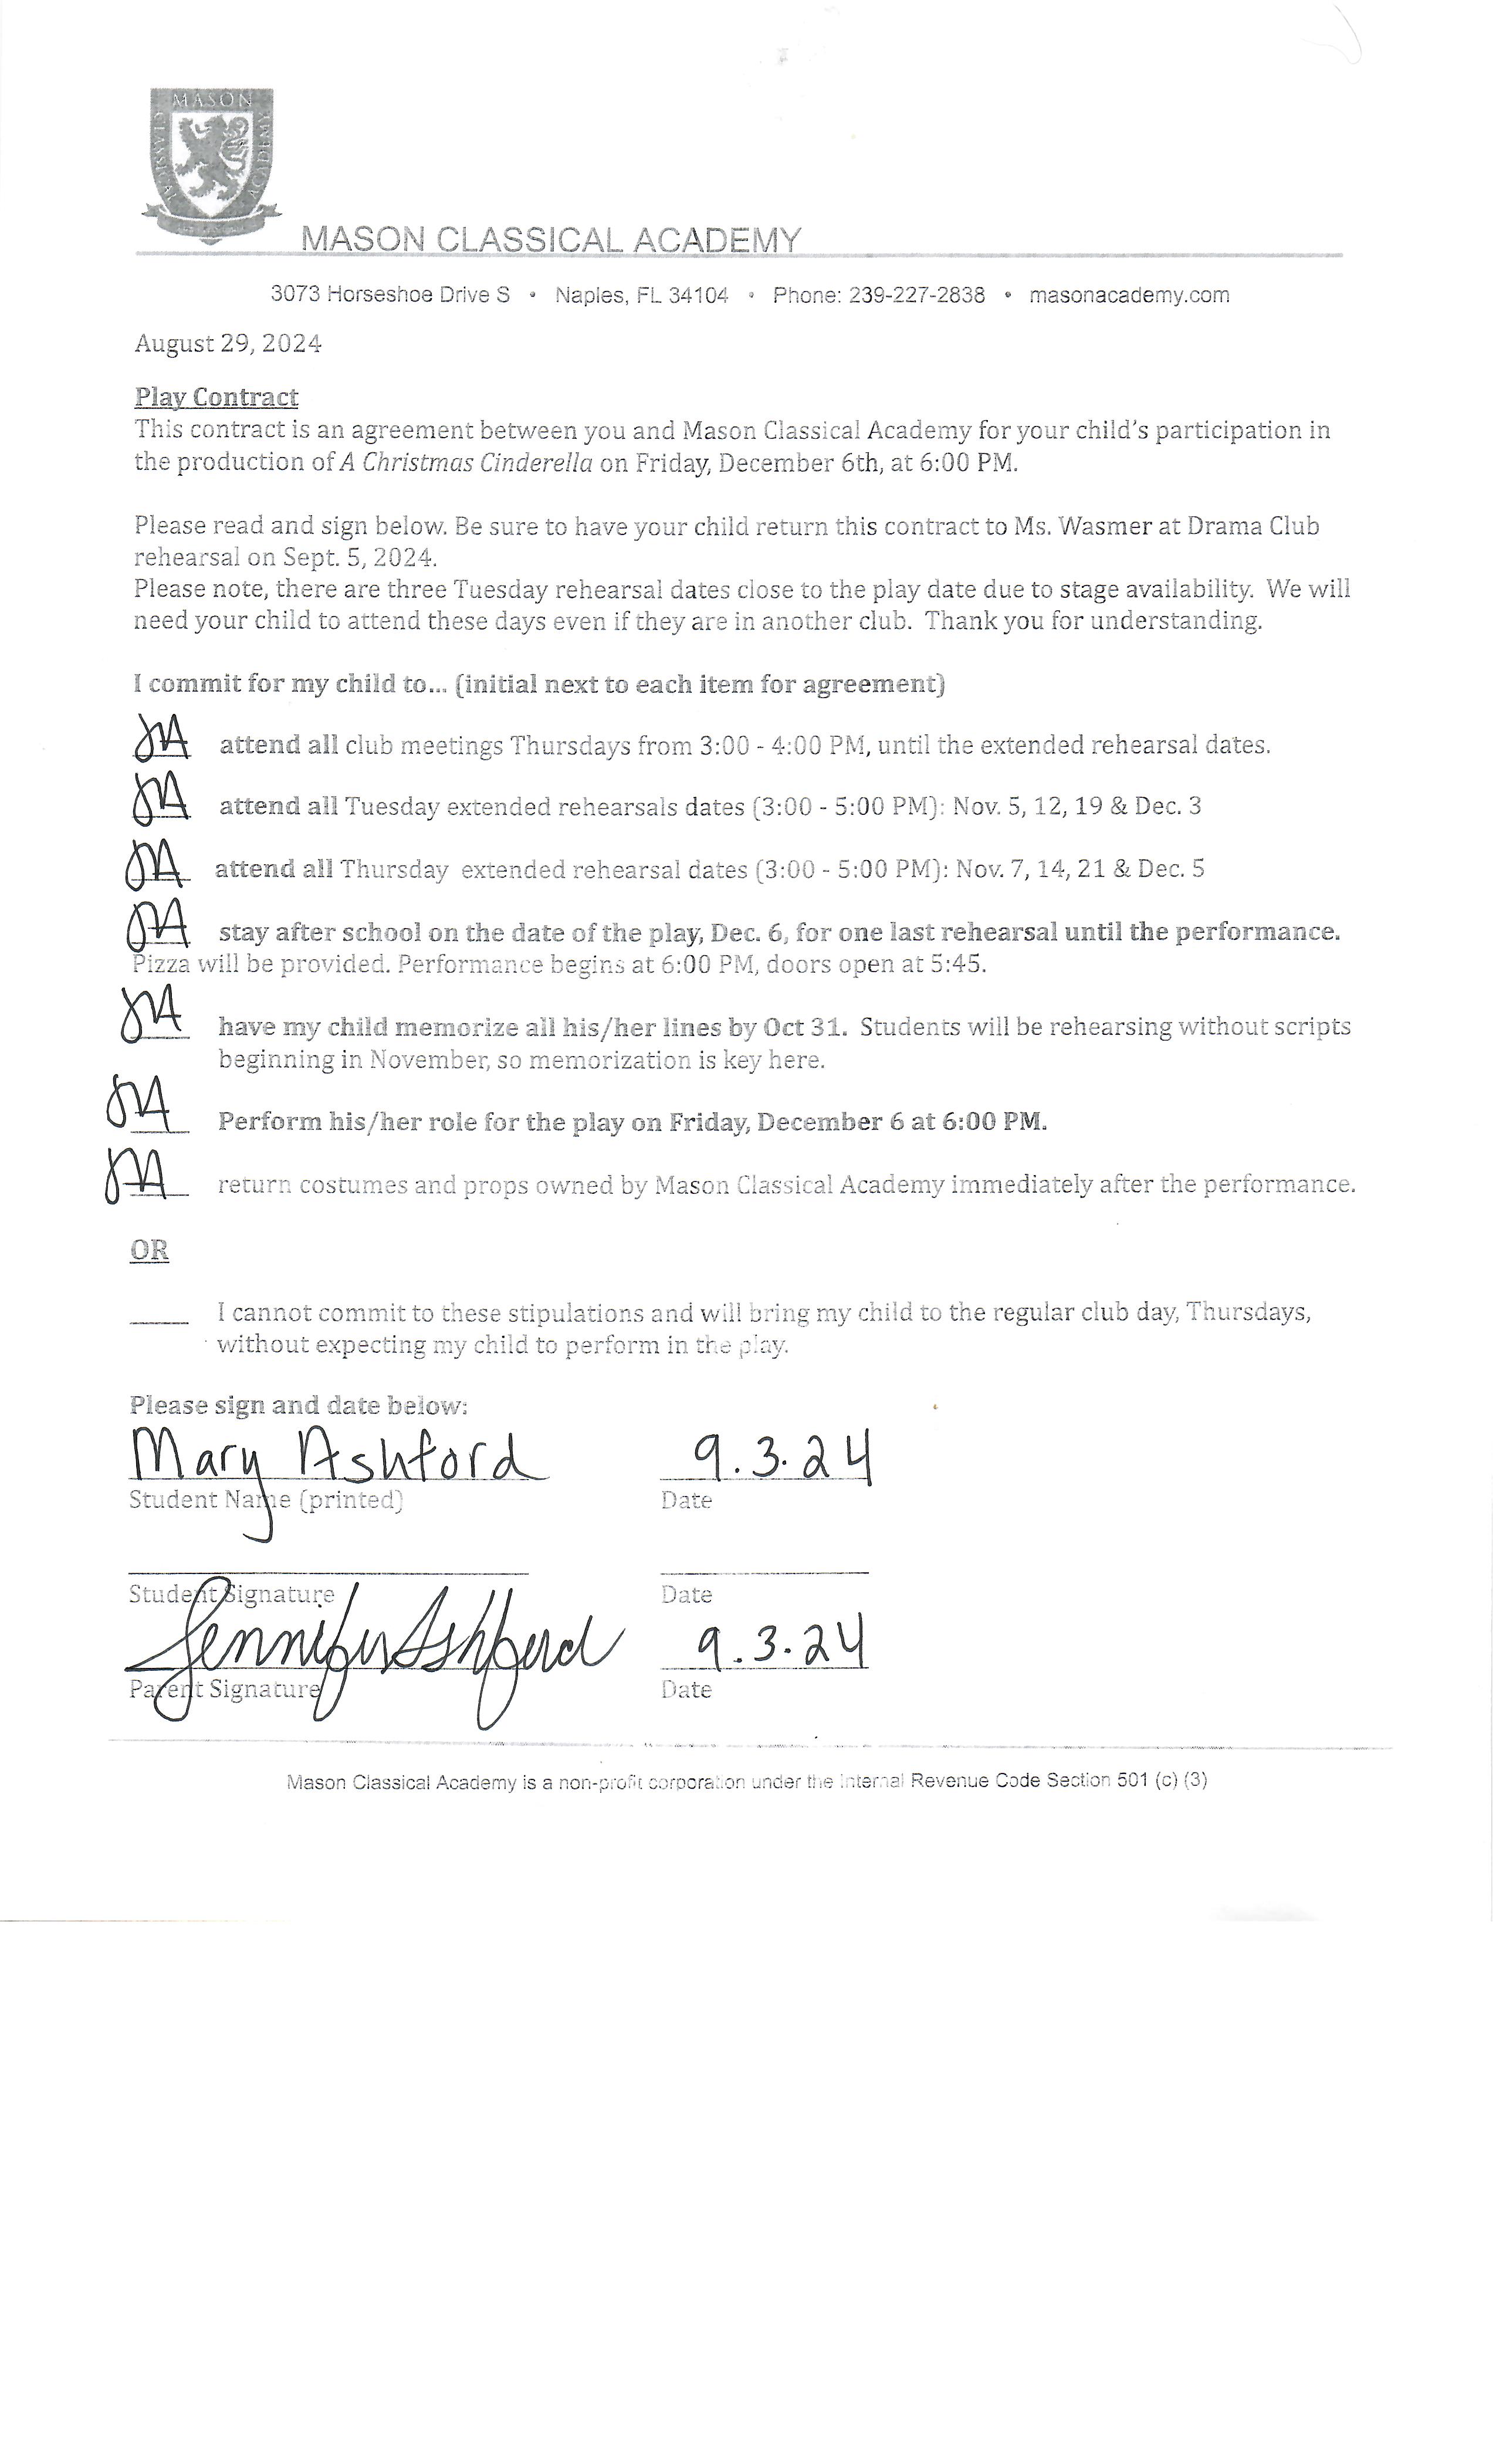 MASON
CLASSICAL
ACADEMY
MASON CLASSICAL ACADEMY
3073 Horseshoe Drive S • Naples, FL 34104 • Phone: 239-227-2838 • masonacademy.com
August 29, 2024
Play Contract
This contract is an agreement between you and Mason Classical Academy for your child's participation in
the production of A Christmas Cinderella on Friday, December 6th, at 6:00 PM.
Please read and sign below. Be sure to have your child return this contract to Ms. Wasmer at Drama Club
rehearsal on Sept. 5, 2024.
Please note, there are three Tuesday rehearsal dates close to the play date due to stage availability. We will
need your child to attend these days even if they are in another club. Thank you for understanding.
I commit for my child to... (initial next to each item for agreement)
JA attend all club meetings Thursdays from 3:00 - 4:00 PM, until the extended rehearsal dates.
JA attend all Tuesday extended rehearsals dates (3:00 - 5:00 PM): Nov. 5, 12, 19 & Dec. 3
JA attend all Thursday extended rehearsal dates (3:00 - 5:00 PM): Nov. 7, 14, 21 & Dec. 5
JA stay after school on the date of the play, Dec. 6, for one last rehearsal until the performance.
Pizza will be provided. Performance begins at 6:00 PM, doors open at 5:45.
JA have my child memorize all his/her lines by Oct 31. Students will be rehearsing without scripts
beginning in November, so memorization is key here.
JA Perform his/her role for the play on Friday, December 6 at 6:00 PM.
JA return costumes and props owned by Mason Classical Academy immediately after the performance.
OR
I cannot commit to these stipulations and will bring my child to the regular club day, Thursdays,
without expecting my child to perform in the play.
Please sign and date below:
Mary Ashford 9.3.24
Student Name (printed) Date
Student Signature Date
Jennifer Ashford 9.3.24
Parent Signature Date
Mason Classical Academy is a non-profit corporation under the Internal Revenue Code Section 501 (c) (3)